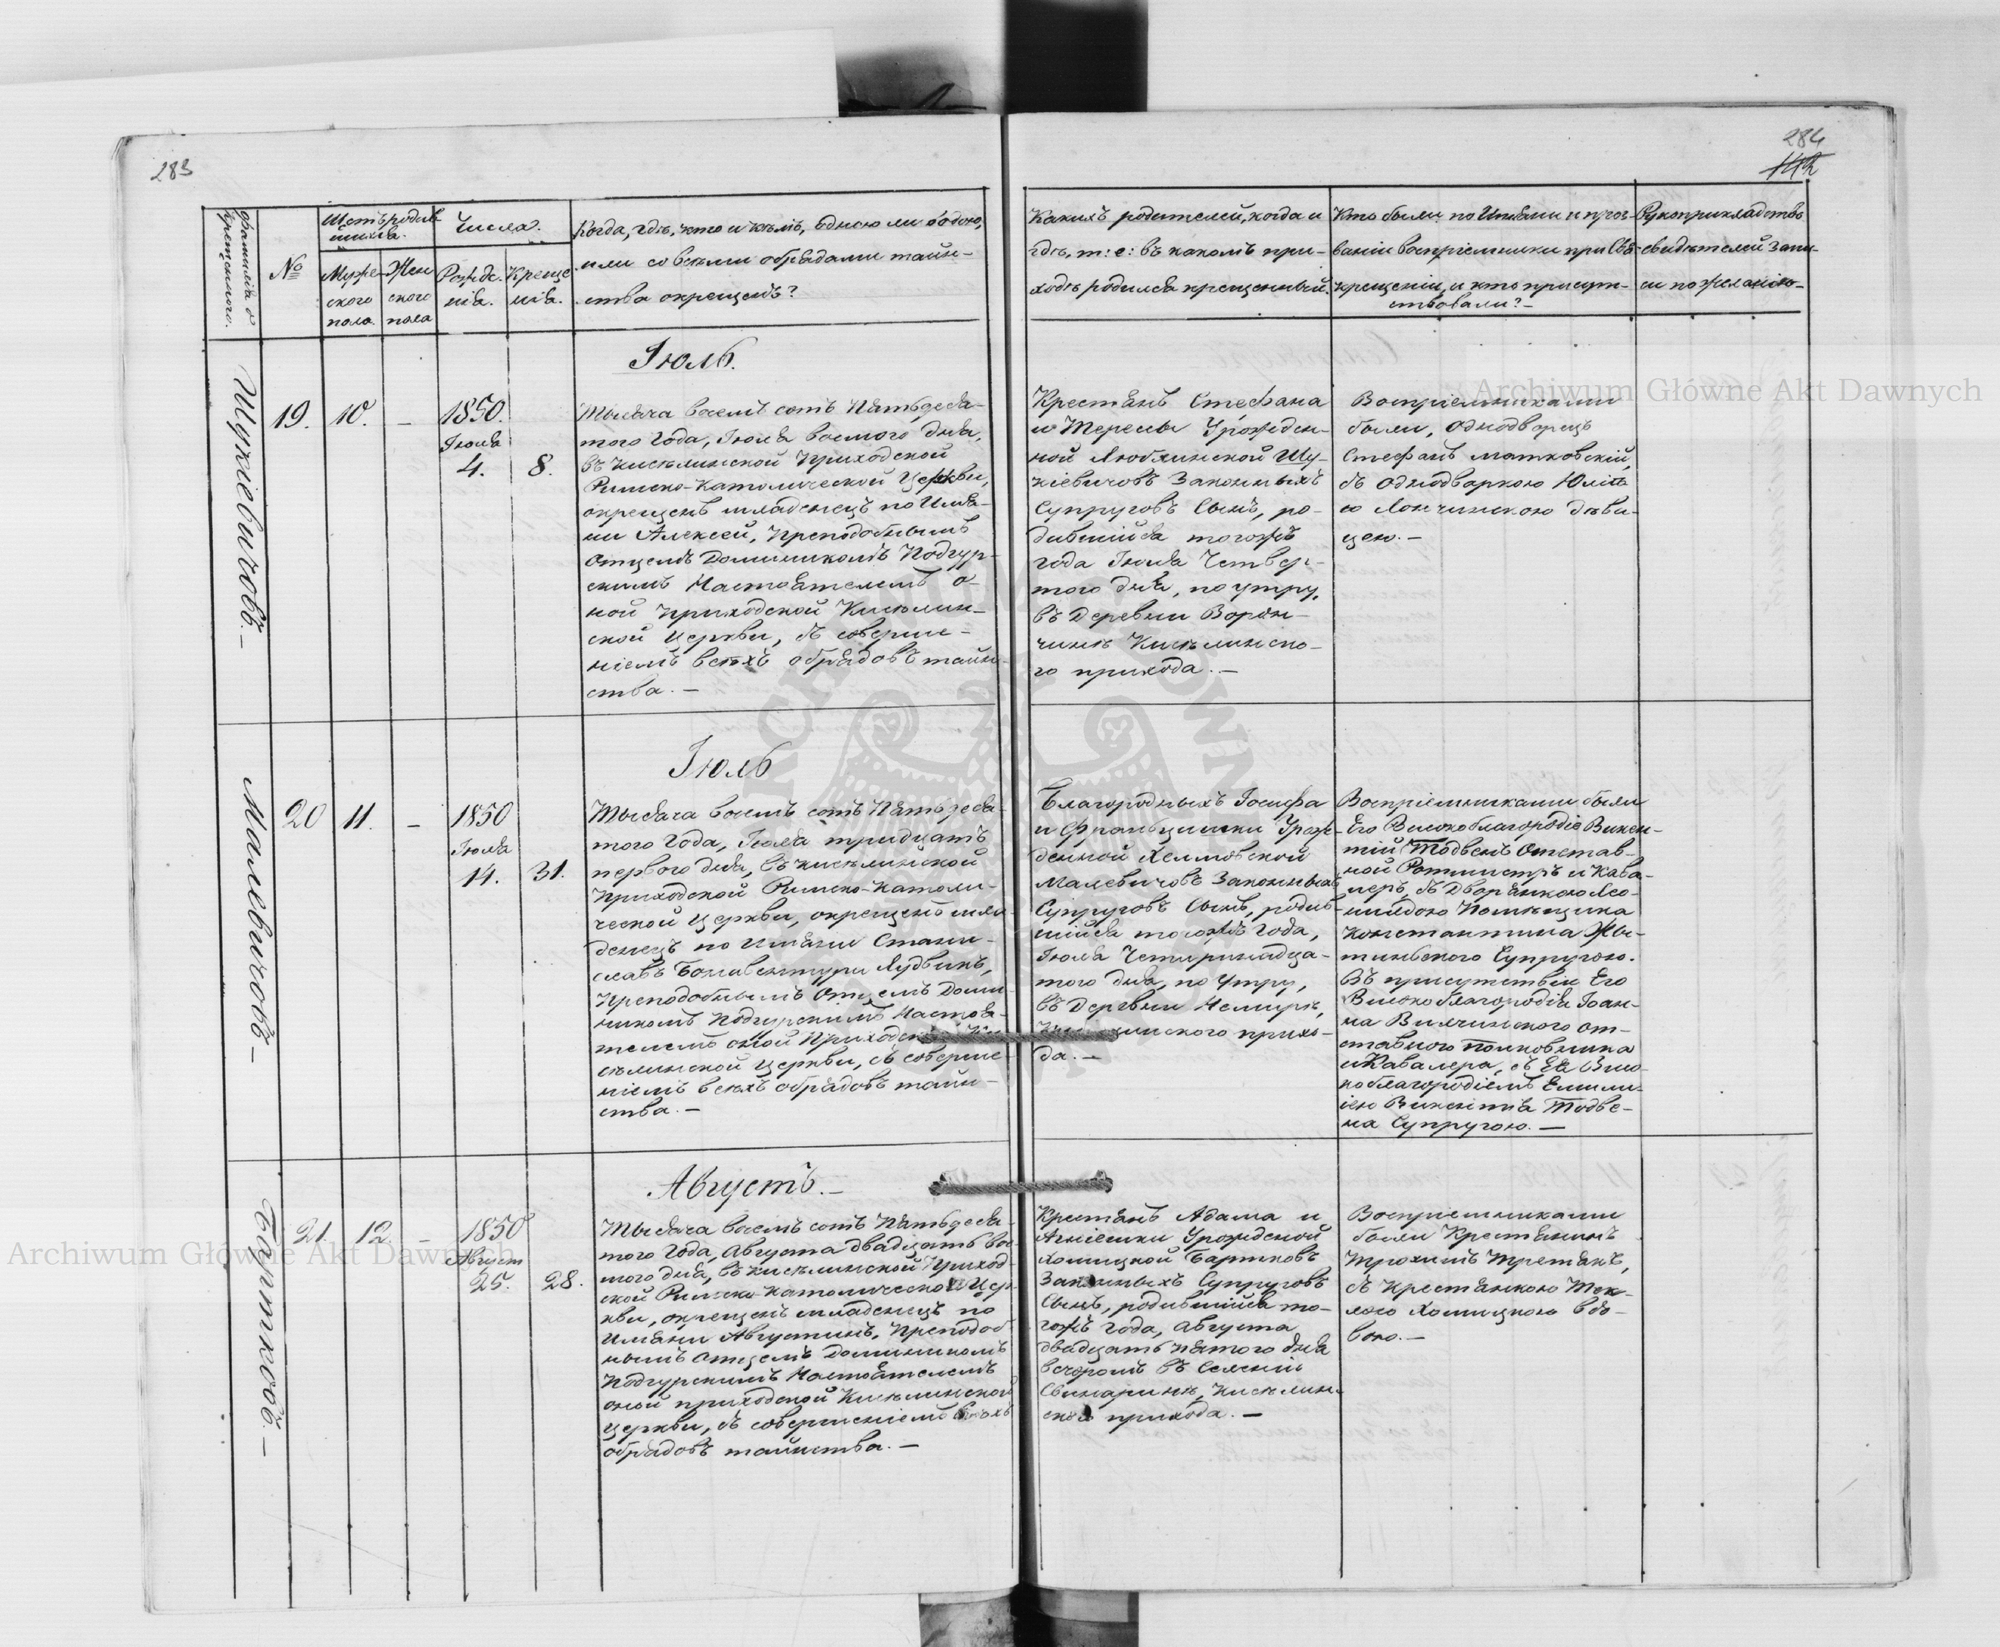 283
284
142
Фамилія о
крещеннаго.
№
Щетъ родив
шихся.
Муже-
ского
пола.
Жен
ского
пола
Числа.
Рожде.
нія.
Креще
нія.
Когда, гдѣ, кто и кѣмъ, одною ли водою,
или со всѣми обрядами таин-
ства окрещенъ?
Какихъ родителей, когда и
гдѣ, т: е: въ какомъ при-
ходѣ родился крещенный.
Кто были по Имени и проз-
ваніи воспріемники при Св:
крещеніи, и кто присут-
ствовали? –
Рукоприкладство
свидѣтелей запи-
си по желанію –
Шукіевичовъ. –
19.
10.
–
1850.
Іюля
4.
8.
Іюль.
Тысяча восемъ сотъ Пятьдеся-
того Года, Іюля восмого дня,
въ Киселинской Приходской
Римско-Католической Церкви,
окрещенъ младенецъ по Имя-
ни Алексей, Преподобнымъ
Отцемъ Доминикомъ Подгур-
скимъ Настоятелемъ о-
ной Приходской Киселин-
ской Церкви, съ соверше-
ніемъ всѣхъ обрядовъ таин-
ства. –
Крестянъ Стефана
и Тересы Урожден-
ной Люблинской Шу-
кіевичовъ Законныхъ
Супруговъ Сынъ, ро-
дившійся тогожъ
года Іюля Четвер-
того дня, по утру,
въ Деревни Ворон-
чинѣ Киселинско-
го прихода. –
Воспріемниками
были, однодворецъ
Стефанъ Матковскій,
съ однодворкою Юлі-
ею Лончинскою дѣви-
цею. –
Малевичовъ –
20
11.
–
1850
Іюля
14.
31.
Іюль
Тысяча восемъ сотъ Пятьдеся-
того Года, Іюля тридцать
первого дня, въ Киселинской
Приходской Римско-Католи-
ческой Церкви, окрещенъ мла-
денецъ по Имяни Стани-
славъ Бонавентура Людвикъ,
Преподобнымъ Отцемъ Доми-
никомъ Подгурскимъ Настоя-
телемъ оной Приходской Ки-
селинской Церкви, съ соверше-
ніемъ всѣхъ обрядовъ таин-
ства. –
Благородныхъ Іосифа
и Францишки Урож-
денной Хелмовской
Малевичовъ Законныхъ
Супруговъ Сынъ, родив-
шійся тогожъ Года,
Іюля Четырнадца-
того дня, по Утру,
въ Деревни Немирѣ,
Киселинского прихо-
да. –
Воспріемниками были
Его Высокоблагородіе Викен-
тій Тодвенъ Отстав-
ной Ротмистръ и Кава-
леръ, съ Дворянкою Лео-
нилдою Помѣщика
Константина Жы-
тынского Супругою.
Въ присутствіи Его
Высокоблагородія Іоан-
на Вилчинского от-
ставного Полковника
и Кавалера, съ Ея Высо-
коблагородіемъ Емили-
іею Викентія Тодве-
на Супругою. –
Бартковъ. –
21.
12.
–
1850
Август
25.
28.
Августъ. –
Тысяча восемъ сотъ Пятьдеся-
того Года, Августа двадцать вос-
мого дня, въ Киселинской Приход-
ской Римско-Католической Цер-
кви, окрещенъ младенецъ по
Имяни Августинъ, Преподоб-
нымъ Отцемъ Доминикомъ
Подгурскимъ Настоятелемъ
оной приходской Киселинской
Церкви, съ совершеніемъ всѣхъ
обрядовъ таинства. –
Крестянъ Адама и
Агнѣшки Урожденой
Хомицкой Бартковъ
Законныхъ Супруговъ
Сынъ, родившійся то-
гожъ Года, Августа
двадцать пятого дня
вечоромъ въ Селеніи
Свинаринѣ, Киселин-
ского прихода. –
Воспріемниками
были Крестянинъ
Трохимъ Третякъ,
съ Крестянкою Тек-
лею Хомицкою вдо-
вою. –
Archiwum Główne Akt Dawnych
Archiwum Główne Akt Dawnych